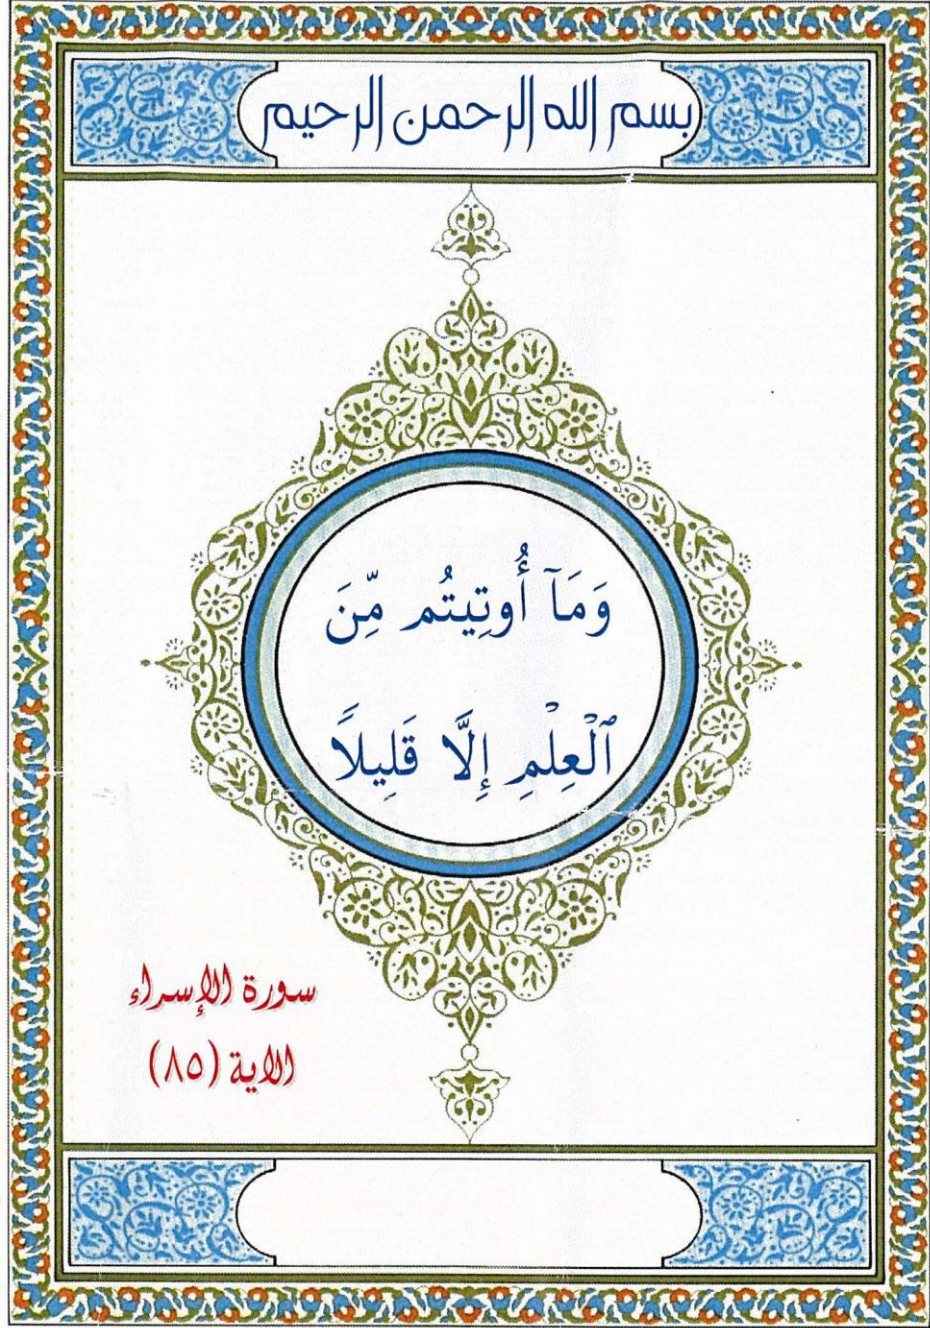 بسم الله الرحمن الرحيم
وَمَآ أُوتِيتُم مِّنَ
ٱلْعِلْمِ إِلَّا قَلِيلًا
سورة الإسراء
الاية (٨٥)